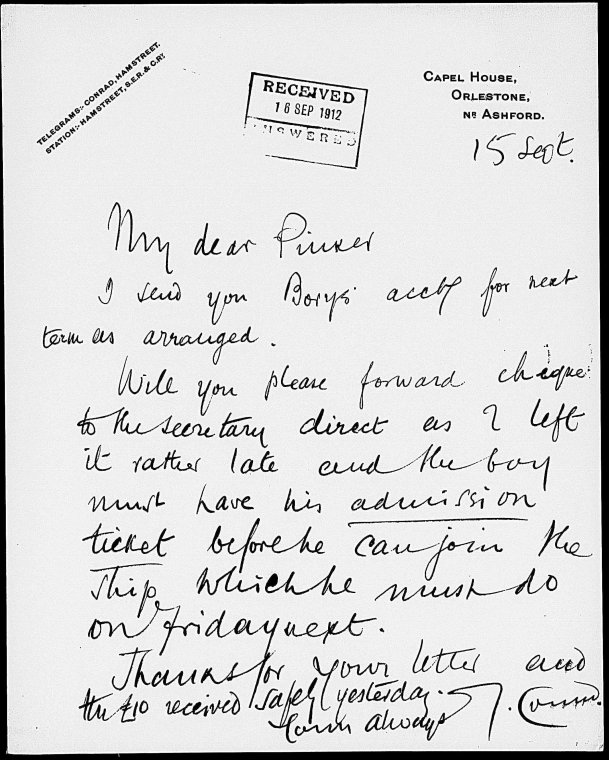 TELEGRAMS:- CONRAD, HAMSTREET.
STATION:- HAMSTREET, S.E.R. & C.RY
RECEIVED
16 SEP 1912
ANSWERED
CAPEL HOUSE,
ORLESTONE,
NR ASHFORD.
15 Sept.
My dear Pinker
I send you Borys' acct for next
term as arranged.
Will you please forward cheque
to the secretary direct as I left
it rather late and the boy
must have his admission
ticket before he can join the
ship, which he must do
on friday next.
Thanks for your letter and
the £10 received safely yesterday.
Yours always J. Conrad.